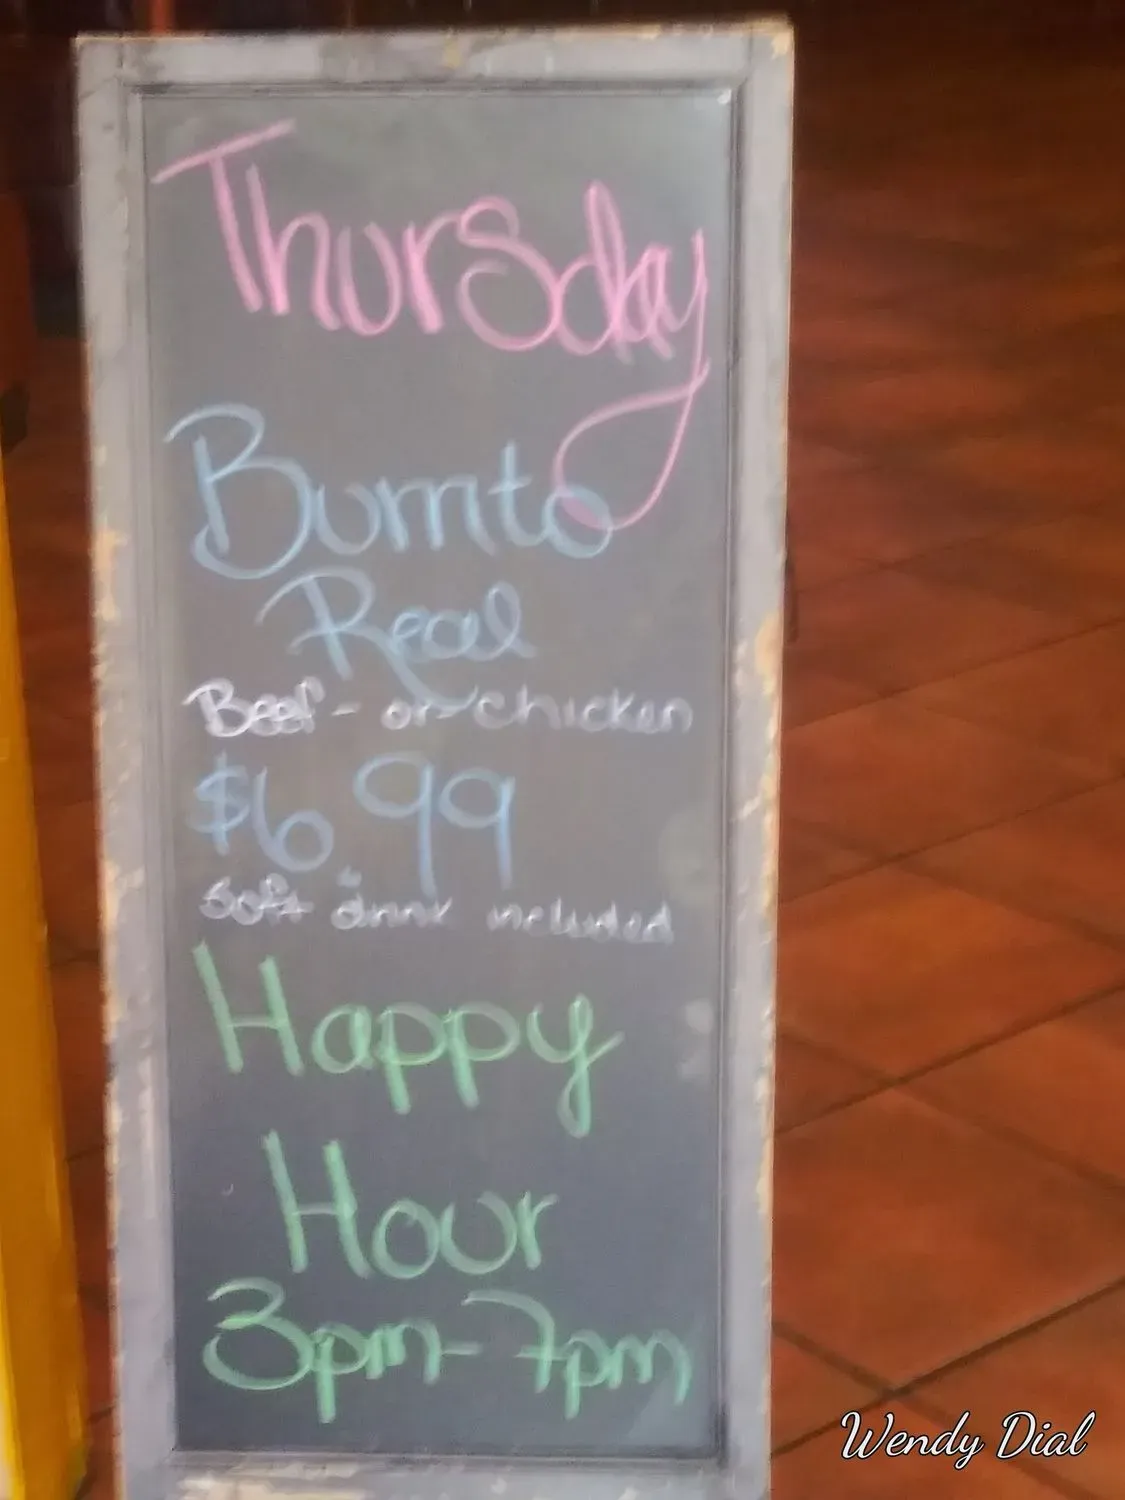 Thursday
Burrito
Real
Beef - or chicken
$6.99
Soft drink included
Happy
Hour
3pm-7pm
Wendy Dial